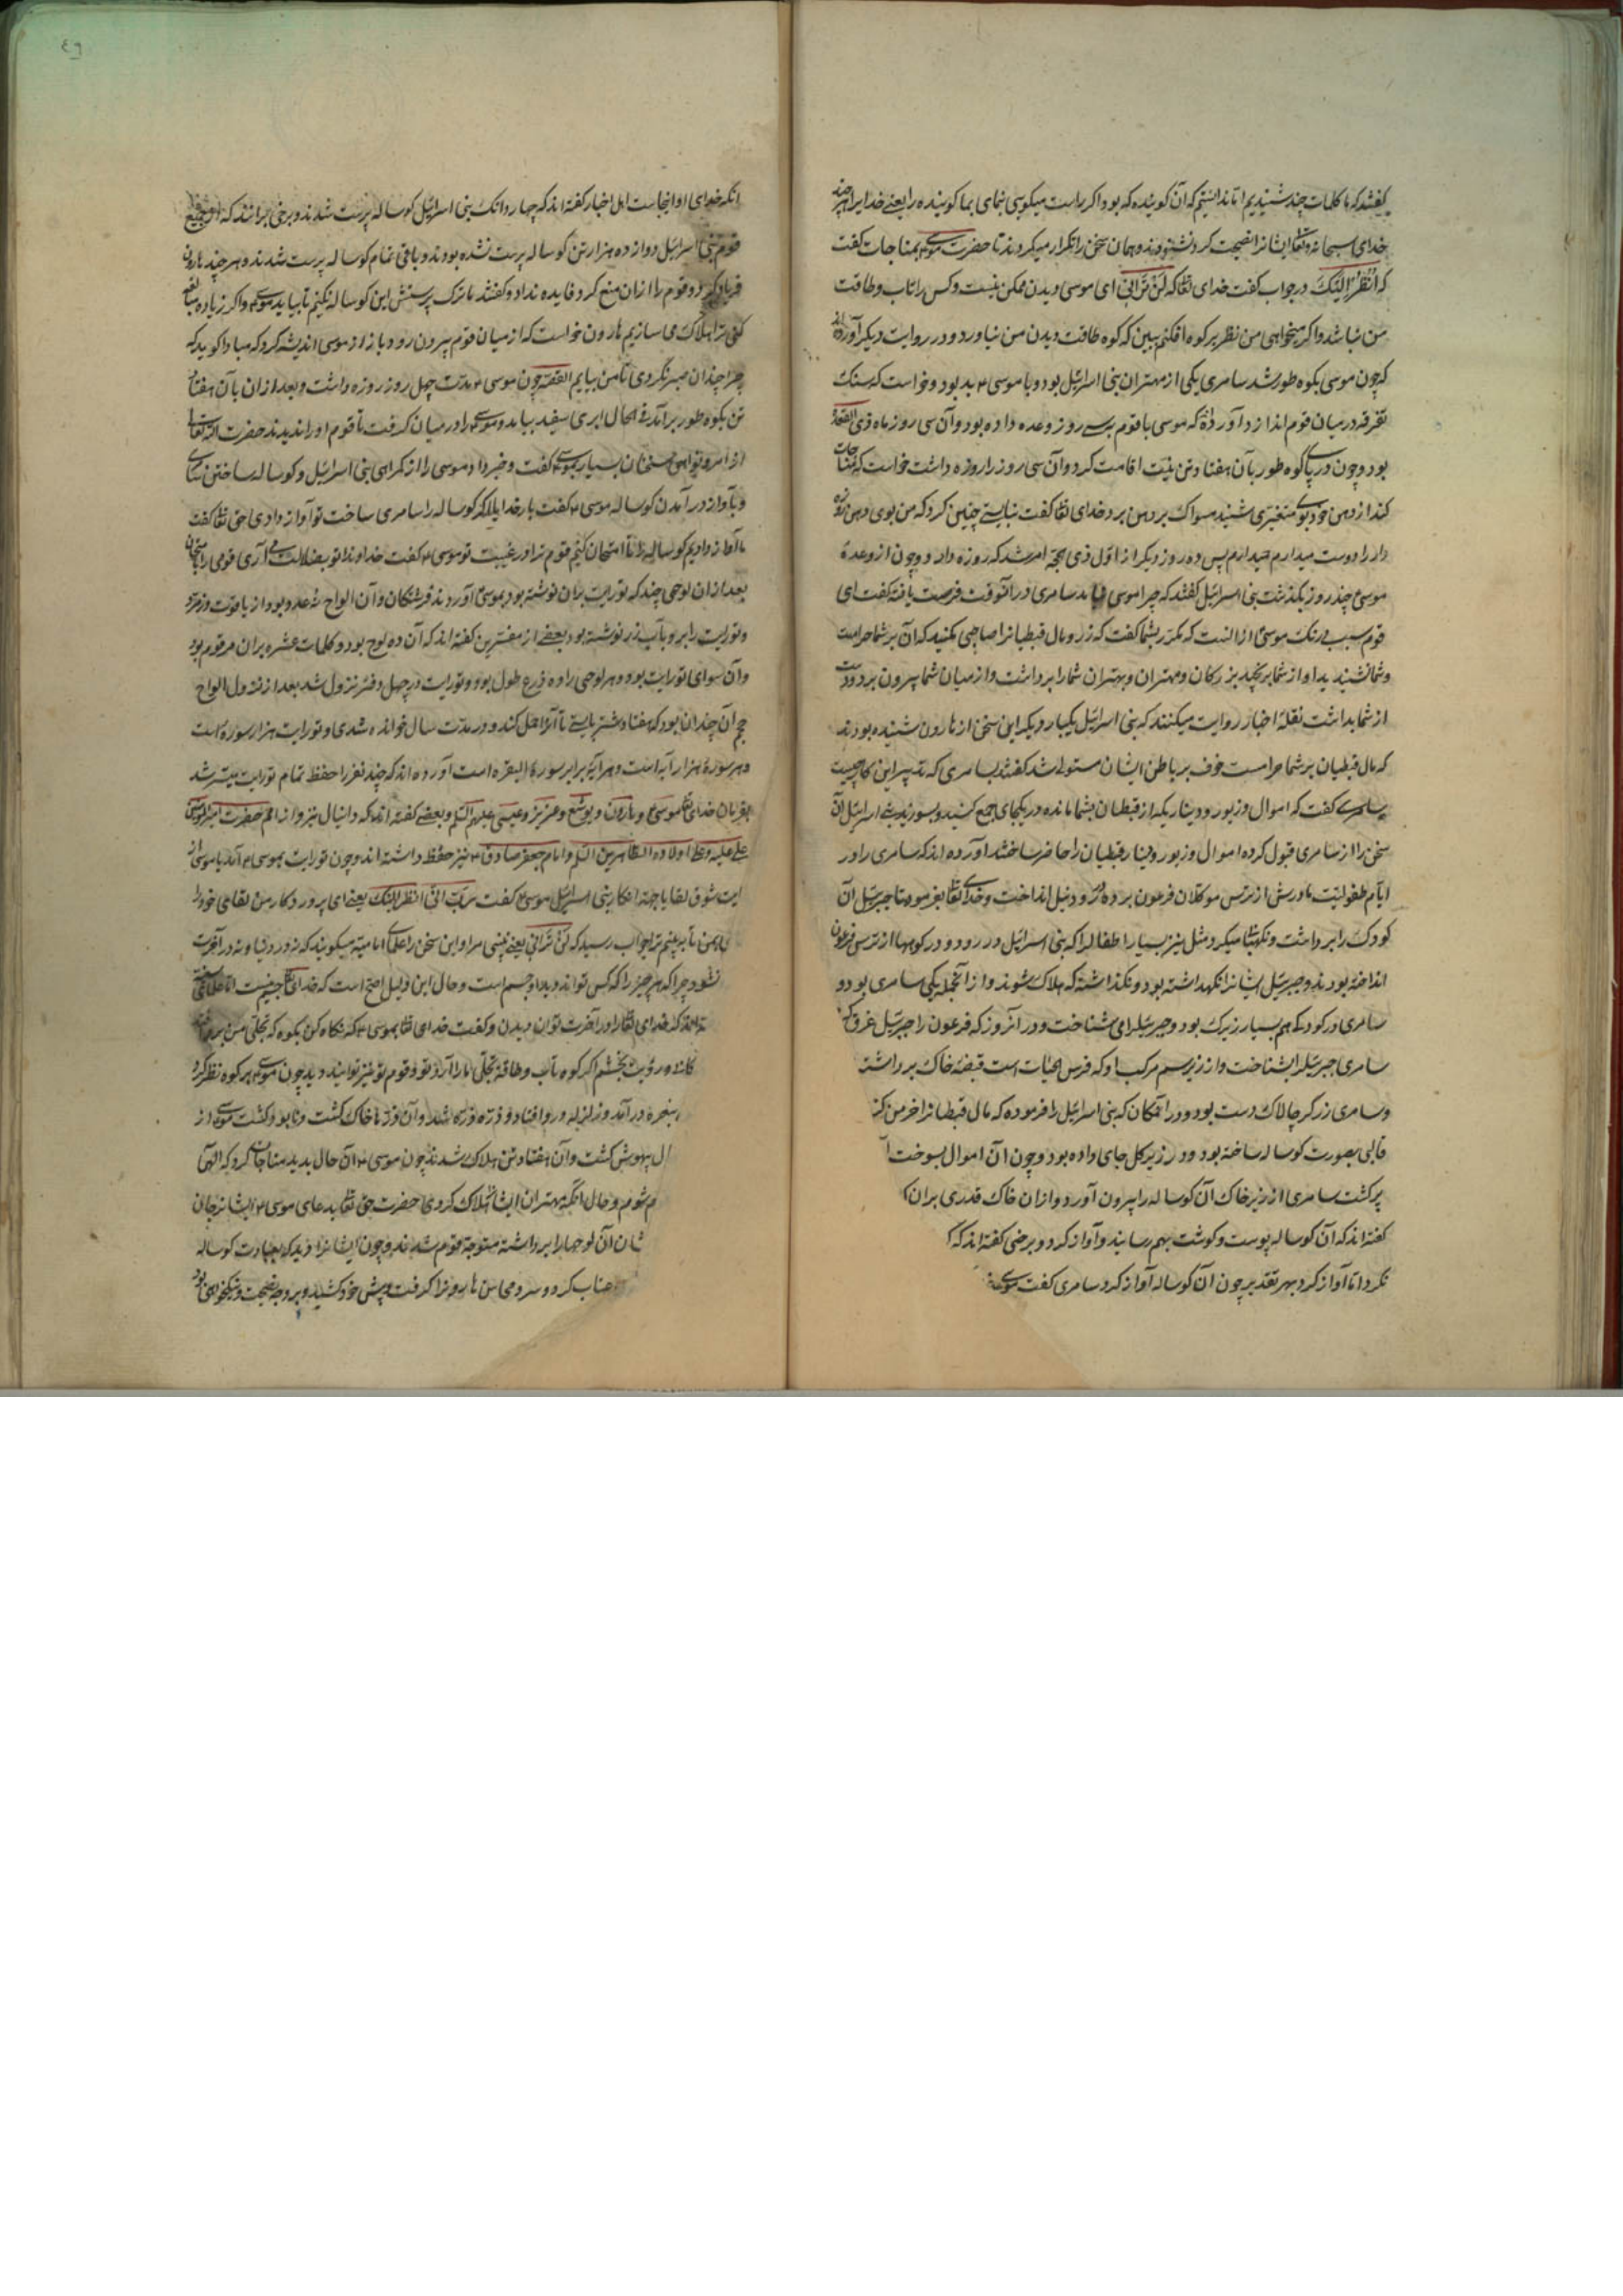 گفتند که ما کلمات چند شنیدیم اما ندانستیم که آن گوینده که بود اگر راست میگویی بنمای بما گوینده را یعنی خدا را هر چند
خدای سبحانه وتعالی ایشانرا نصیحت کرد نشنودند و همان سخن را تکرار میکردند تا حضرت موسی بمناجات گفت
که اَنْظُرْ اِلَیْکَ در جواب گفت خدای تعالی که لَنْ تَرَانِی ای موسی دیدن ممکن نیست و کس را تاب و طاقت
من نباشد و اگر میخواهی من نظر بر کوه افکنم ببین که کوه طاقت دیدن من نیاورد و در روایت دیگر آورده اند
که چون موسی بکوه طور شد سامری یکی از مهتران بنی اسرائیل بود و با موسی ع بد بود و خواست که سنک
تفرقه در میان قوم اندازد آورده که موسی با قوم بسی روز وعده داده بود و آن سی روز ماه ذی القعده
بود و چون در پای کوه طور بآن هفتاد تن بنیت اقامت کرد و آن سی روز را روزه داشت خواست که مناجات
کند از دهن خود بوی متغیری شنید مسواک بر دهن برد خدای تعالی گفت نبایستی چنین کرد که من بوی دهن روزه
دار را دوست میدارم پس ده روز دیگر از اول ذی حجه امر شد که روزه دارد و چون از وعدهٔ
موسی چند روز بگذشت بنی اسرائیل گفتند که چرا موسی نیامد سامری در آنوقت فرصت یافته گفت ای
قوم سبب درنک موسی ع از آنست که مکرر بشما گفت که زر و مال قبطیانرا صاحبی مکنید که آن بر شما حرامست
و شما نشنیدید او از شما برنجید بزرکان و مهتران و بهتران شما را برداشت و از میان شما بیرون برد و دست
از شما بداشت نقلهٔ اخبار روایت میکنند که بنی اسرائیل یکبار دیگر این سخن از هارون شنیده بودند
که مال قبطیان بر شما حرامست خوف بر باطن ایشان مستولی شد گفتند بسامری که تدبیر این کار چیست
سامری گفت که اموال و زیور و دینار یکه از قبطیان بشما مانده در یکجای جمع کنید و بسوزید بنی اسرائیل آن
سخن را از سامری قبول کرده اموال و زیور و دینار قبطیان را حاضر ساختند آورده اند که سامری را در
ایام طفولیت مادرش از ترس موکلان فرعون برده در رود نیل انداخت و خدای تعالی بفرمود تا جبرئیل آن
کودک را برداشت و نکهداشتها میکرد مثل نیز بسیار اطفال را که بنی اسرائیل در رود و در کوهها از ترس فرعون
انداخته بودند و جبرئیل ایشانرا نکهداشته بود و نگذاشته که هلاک شوند و از آنجمله یکی سامری بود و
سامری در کودکی هم بسیار زیرک بود و جبرئیل را می شناخت و در آنروز که فرعون را جبرئیل غرق
سامری جبرئیل را بشناخت و از زیر سم مرکب او که فرس الحیات است قبضهٔ خاک برداشت
و سامری زرگر چالاک دست بود و در آنمکان که بنی اسرائیل را فرموده که مال قبطیانرا خرمن کنند
قالبی بصورت کوساله ساخته بود و در زیر گل جای داده بود و چون آن اموال بسوخت
برگشت سامری از زیر خاک آن کوساله را بیرون آورد و از آن خاک قدری بر آن
گفته اند که آن کوساله پوست و گوشت بهم رسانید و آواز کرد و برخی گفته اند که
نکرد اما آواز کرد بهر تقدیر چون آن کوساله آواز کرد سامری گفت موسی
٤٩
انکه خدای او اینجاست اهل اخبار گفته اند که چهار دانک بنی اسرائیل کوساله پرست شدند و برخی برانند که از جمیع
قوم بنی اسرائیل دوازده هزار تن کوساله پرست نشده بودند و باقی تمام کوساله پرست شدند و هر چند هارون
فریاد کرد و قوم را از آن منع کرد فایده نداد و گفتند ما ترک پرستش این کوساله نکنیم تا بیاید موسی و اگر زیاده مبالغه
کنی ترا هلاک می سازیم هارون خواست که از میان قوم بیرون رود باز از موسی اندیشه کرد که مبادا گوید که
چرا چندان صبر نکردی تا من بیایم القصه چون موسی ع مدت چهل روز روزه داشت و بعد از آن با آن هفتاد
تن بکوه طور بر آمد فی الحال ابری سفید بیامد و موسی را در میان گرفت تا قوم او را ندیدند حضرت الله تعالی
از امر و نواهی سخنان بسیار بموسی گفت و خبر داد موسی را از گمراهی بنی اسرائیل و کوساله ساختن سامری
و بآواز در آمدن کوساله موسی ع گفت بار خدایا اگر کوساله را سامری ساخت تو آواز دادی حق تعالی گفت
ما آواز دادیم کوساله را تا امتحان کنیم قوم ترا در غیبت تو موسی ع گفت خداوندا تو بضلالت می آری قومی را بامتحان
بعد از آن لوحی چند که توریت بر آن نوشته بود بموسی آوردند فرشتکان و آن الواح نه عدد بود از یاقوت و زمرد
و توریت را برو بآب زر نوشته بود بعضی از مفسرین گفته اند که آن ده لوح بود و کلمات عشره بر آن مرقوم بود
و آن سوای توریت بود و هر لوحی را ده ذرع طول بود و توریت در چهل دفتر نزول شد بعد از نزول الواح
حجم آن چندان بود که هفتاد شتر بایستی تا آنرا حمل کند و در مدت سال خوانده شدی و توریت هزار سوره است
و هر سورهٔ هزار آیه است و هر آیه برابر سورهٔ البقره است آورده اند که چند نفر را حفظ تمام توریت میسر شد
بفرمان خدای تعالی موسی ع و هارون و یوشع و عزیز و عیسی علیهم السلم و بعضی گفته اند که دانیال نیز و از امم حضرت امیر المؤمنین
علی علیه و علی اولاده الطاهرین السلم و امام جعفر صادق ع نیز حفظ داشته اند و چون توریت بموسی ع آمد یا موسی از
شوق لقا یا جهة انکار بنی اسرائیل موسی ع گفت رَبِّ اَرِنِی اَنْظُرْ اِلَیْکَ یعنی ای پروردکار من لقای خود را
بمن تا ببینم ترا جواب رسید که لَنْ تَرَانِی یعنی نبینی مرا و این سخن را علمای امامیه میگویند که نه در دنیا و نه در آخرت
نشود چرا که هر چیز را که کس تواند دید او جسم است و حال این دلیل اصح است که خدای تعالی جسم نیست اما علمای
که خدای تعالی را در آخرت توان دیدن و گفت خدای تعالی بموسی ع که نگاه کن بکوه که تجلی من بر
رؤیت بخشم اگر کوه تاب و طاقة تجلی ما را آرد تو و قوم تو نیز توانید دید چون موسی بر کوه نظر کرد
در آمد و زلزله در و افتاد و ذره ذره شد و آن ذرها خاک گشت و نابود گشت موسی از
بیهوش گشت و آن هفتاد تن هلاک شدند چون موسی ع آن حال بدید مناجات کرد که الهی
و حال آنکه مهتران ایشانرا هلاک کردی حضرت حق تعالی بدعای موسی ع ایشانرا جان
آن لوحها را برداشته متوجه قوم شدند و چون ایشانرا دید که بعبادت کوساله
عتاب کرد و سر و محاسن هارونرا گرفت و پیش خود کشید و بر وجه نصیحت و نیکخواهی بود